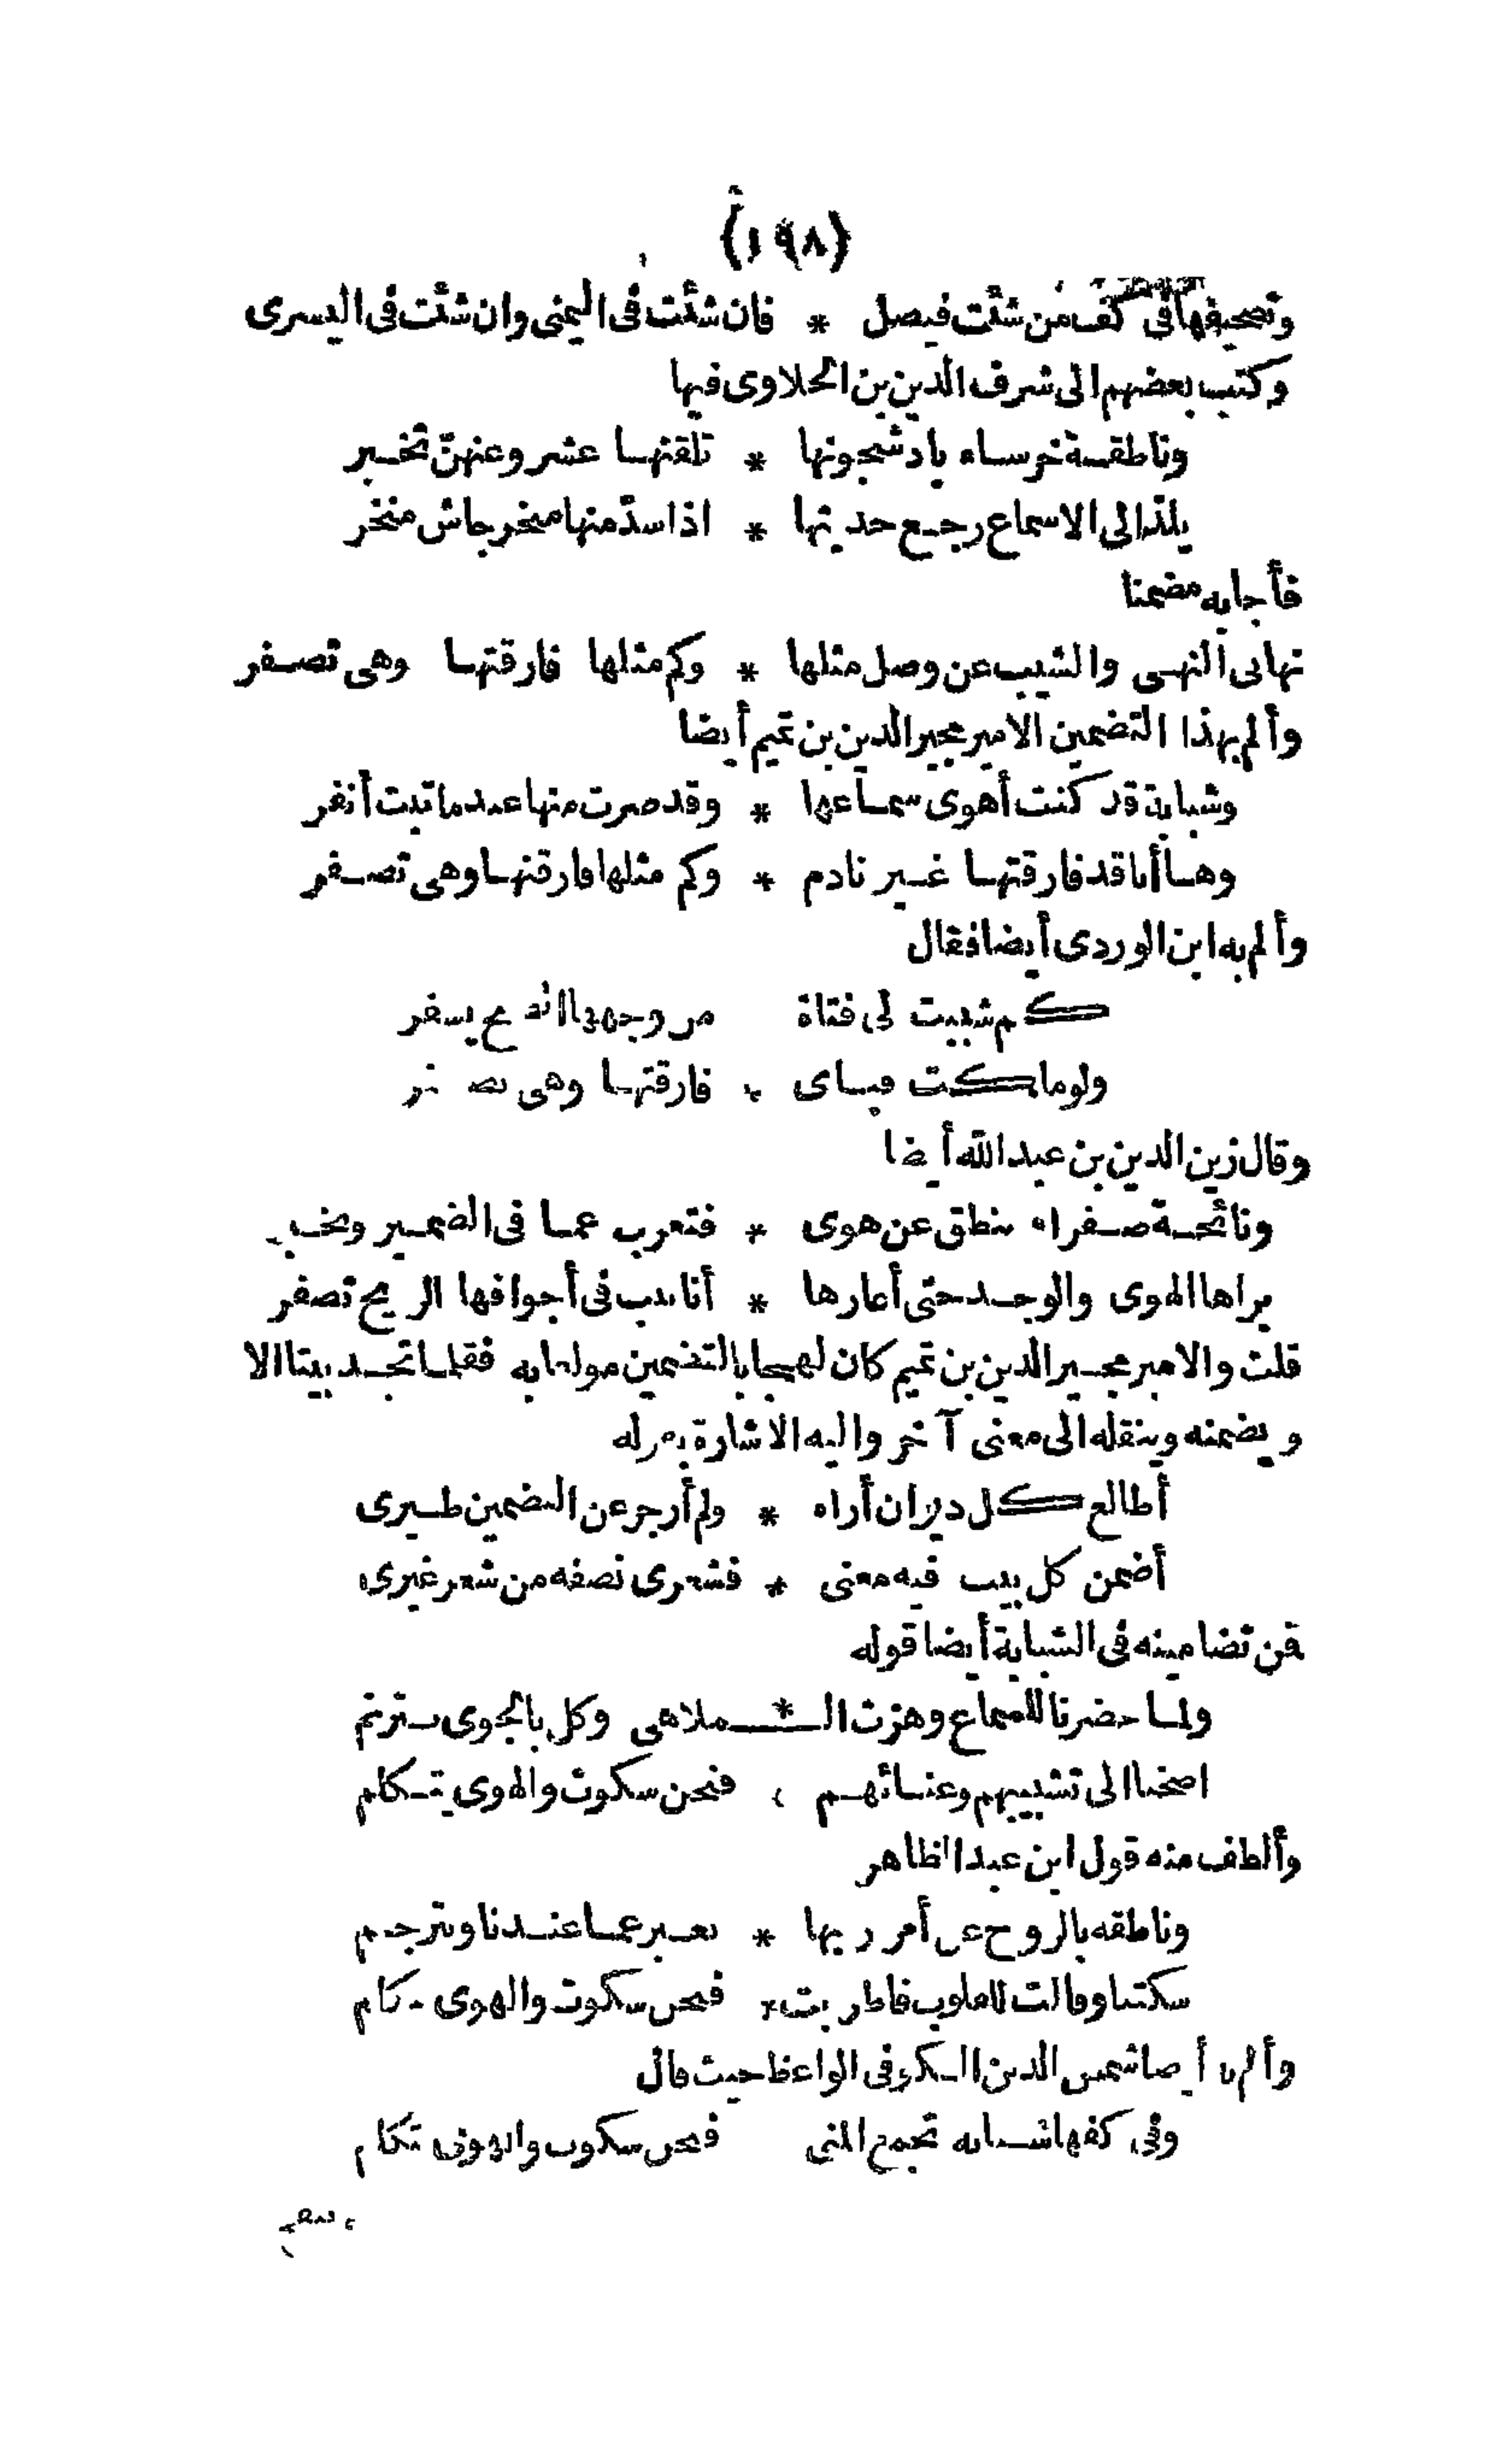 {١٩٨}
وتصحيفها في كف من شئت فيصل * فان شئت في اليمنى وان شئت في اليسرى
وكتب بعضهم الى شرف الدين بن الحلاوى فيها
وناطقة خرساء باد شجونها * تلقتها عشر وعنهن تخبر
يلذ الى الاسماع رجيع حديثها * اذا سد منها منخر جاش منخر
فأجابه مضمنا
نهانى النهى والشيب عن وصل مثلها * وكم مثلها فارقتها وهى تصفر
وألم بهذا التضمين الامير مجير الدين بن تميم أيضا
وشبابة قد كنت أهوى سماعها * وقد صرت منها عندما تبت أنفر
وها أنا قد فارقتها غير نادم * وكم مثلها فارقتها وهى تصفر
وألم به ابن الوردى أيضا فقال
كم شببت لى فتاة من وجهها يسفر
ولو ملكت * فارقتها وهى تصفر
وقال زين الدين بن عبد الله أيضا
ونائحة صفراء تنطق عن هوى * فتعرب عما في الضمير وتخبر
براها الهوى والوجد حتى أعارها * أنابيب في أجوافها الريح تصفر
قلت والامير مجير الدين بن تميم كان لهجا بالتضمين مولعا به فقلما تجد بيتا الا
ويضمنه وينقله الى معنى آخر واليه الاشارة بقوله
أطالع كل ديوان أراه * ولم أزجر عن التضمين طيرى
أضمن كل بيت فيه معنى * فشعرى نصفه من شعر غيرى
فمن تضامينه في الشبابة أيضا قوله
ولما حضرنا للسماع وهزت الـ * ـملاهى وكل بالجوى يترنم
اصخنا الى تشبيبهم وغنائهم * فنحن سكوت والهوى يتكلم
وألطف منه قول ابن عبد الظاهر
وناطقة بالروح عن أمر ربها * تعبر عما عندنا وتترجم
سكتنا وقالت للقلوب فاطربت * فنحن سكوت والهوى يتكلم
وألم به أيضا شمس الدين في الواعظ حيث قال
وفى كفها شبابة تجمع المنى فنحن سكوت والهوى يتكلم